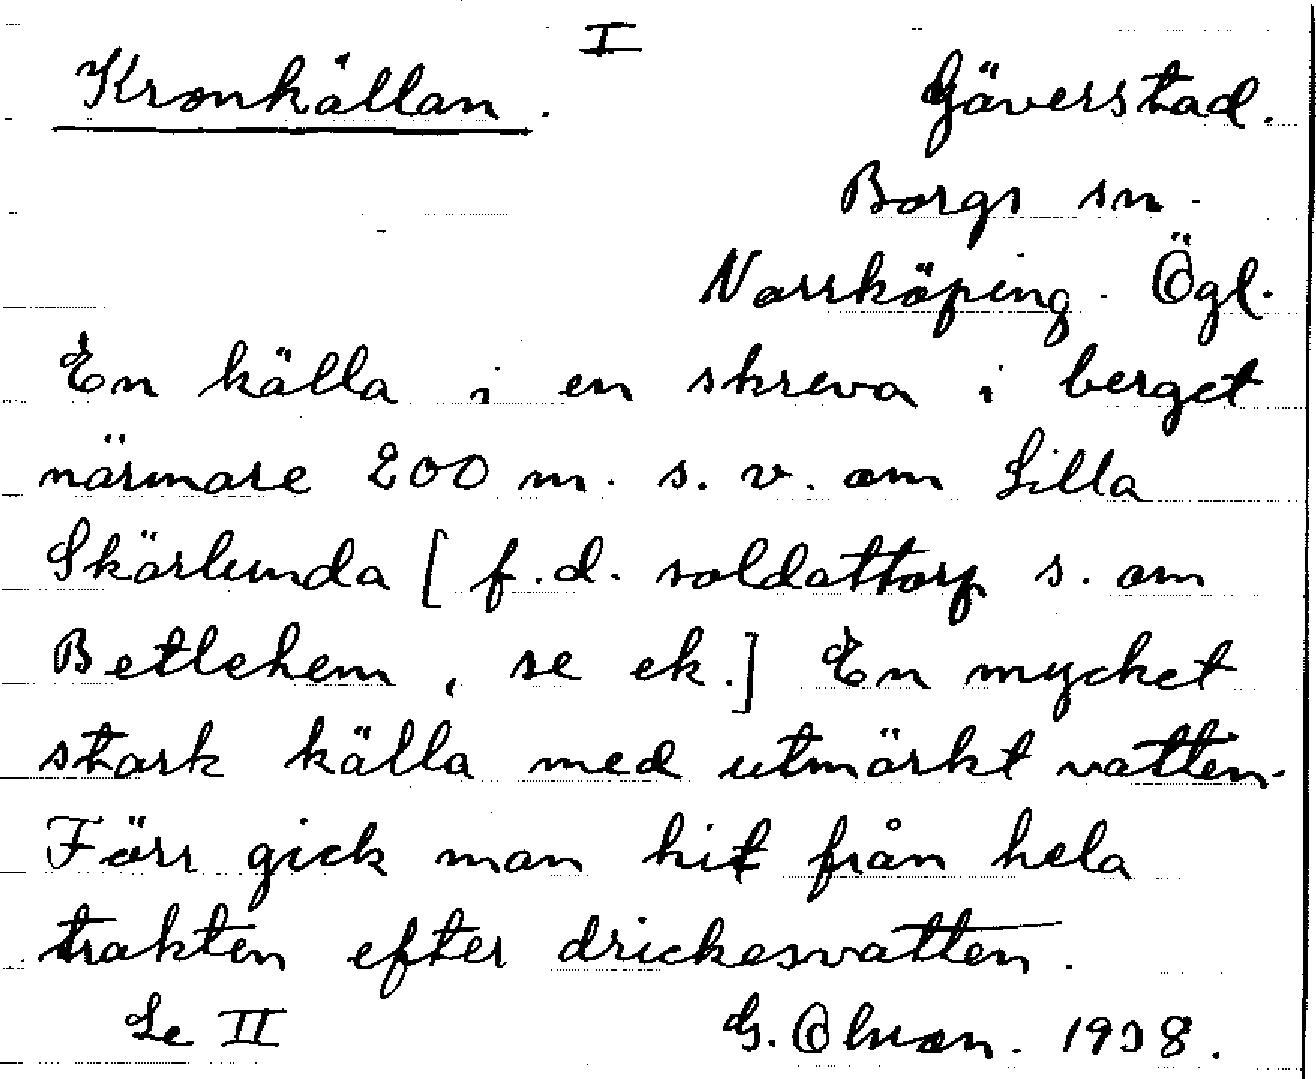 I
Kronkällan. Gäverstad.
Borgs sn.
Norrköping. Ögl.
En källa i en skreva i berget
närmare 200 m. s. v. om Lilla
Skärlunda [f.d. soldattorp s. om
Betlehem, se ek.] En mycket
stark källa med utmärkt vatten.
Förr gick man hit från hela
trakten efter drickesvatten.
Se II G. 1938.